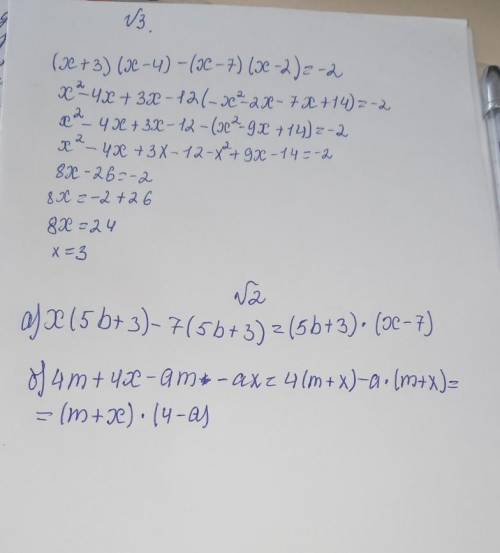 √3.
(x+3)(x-4)-(x-7)(x-2)=-2
x²-4x+3x-12(-x²-2x-7x+14)=-2
x²-4x+3x-12-(x²-9x+14)=-2
x²-4x+3x-12-x²+9x-14=-2
8x-26=-2
8x=-2+26
8x=24
x=3
√2
а) x(5b+3)-7(5b+3)=(5b+3)·(x-7)
б) 4m+4x-am-ax=4(m+x)-a·(m+x)=
=(m+x)·(4-a)